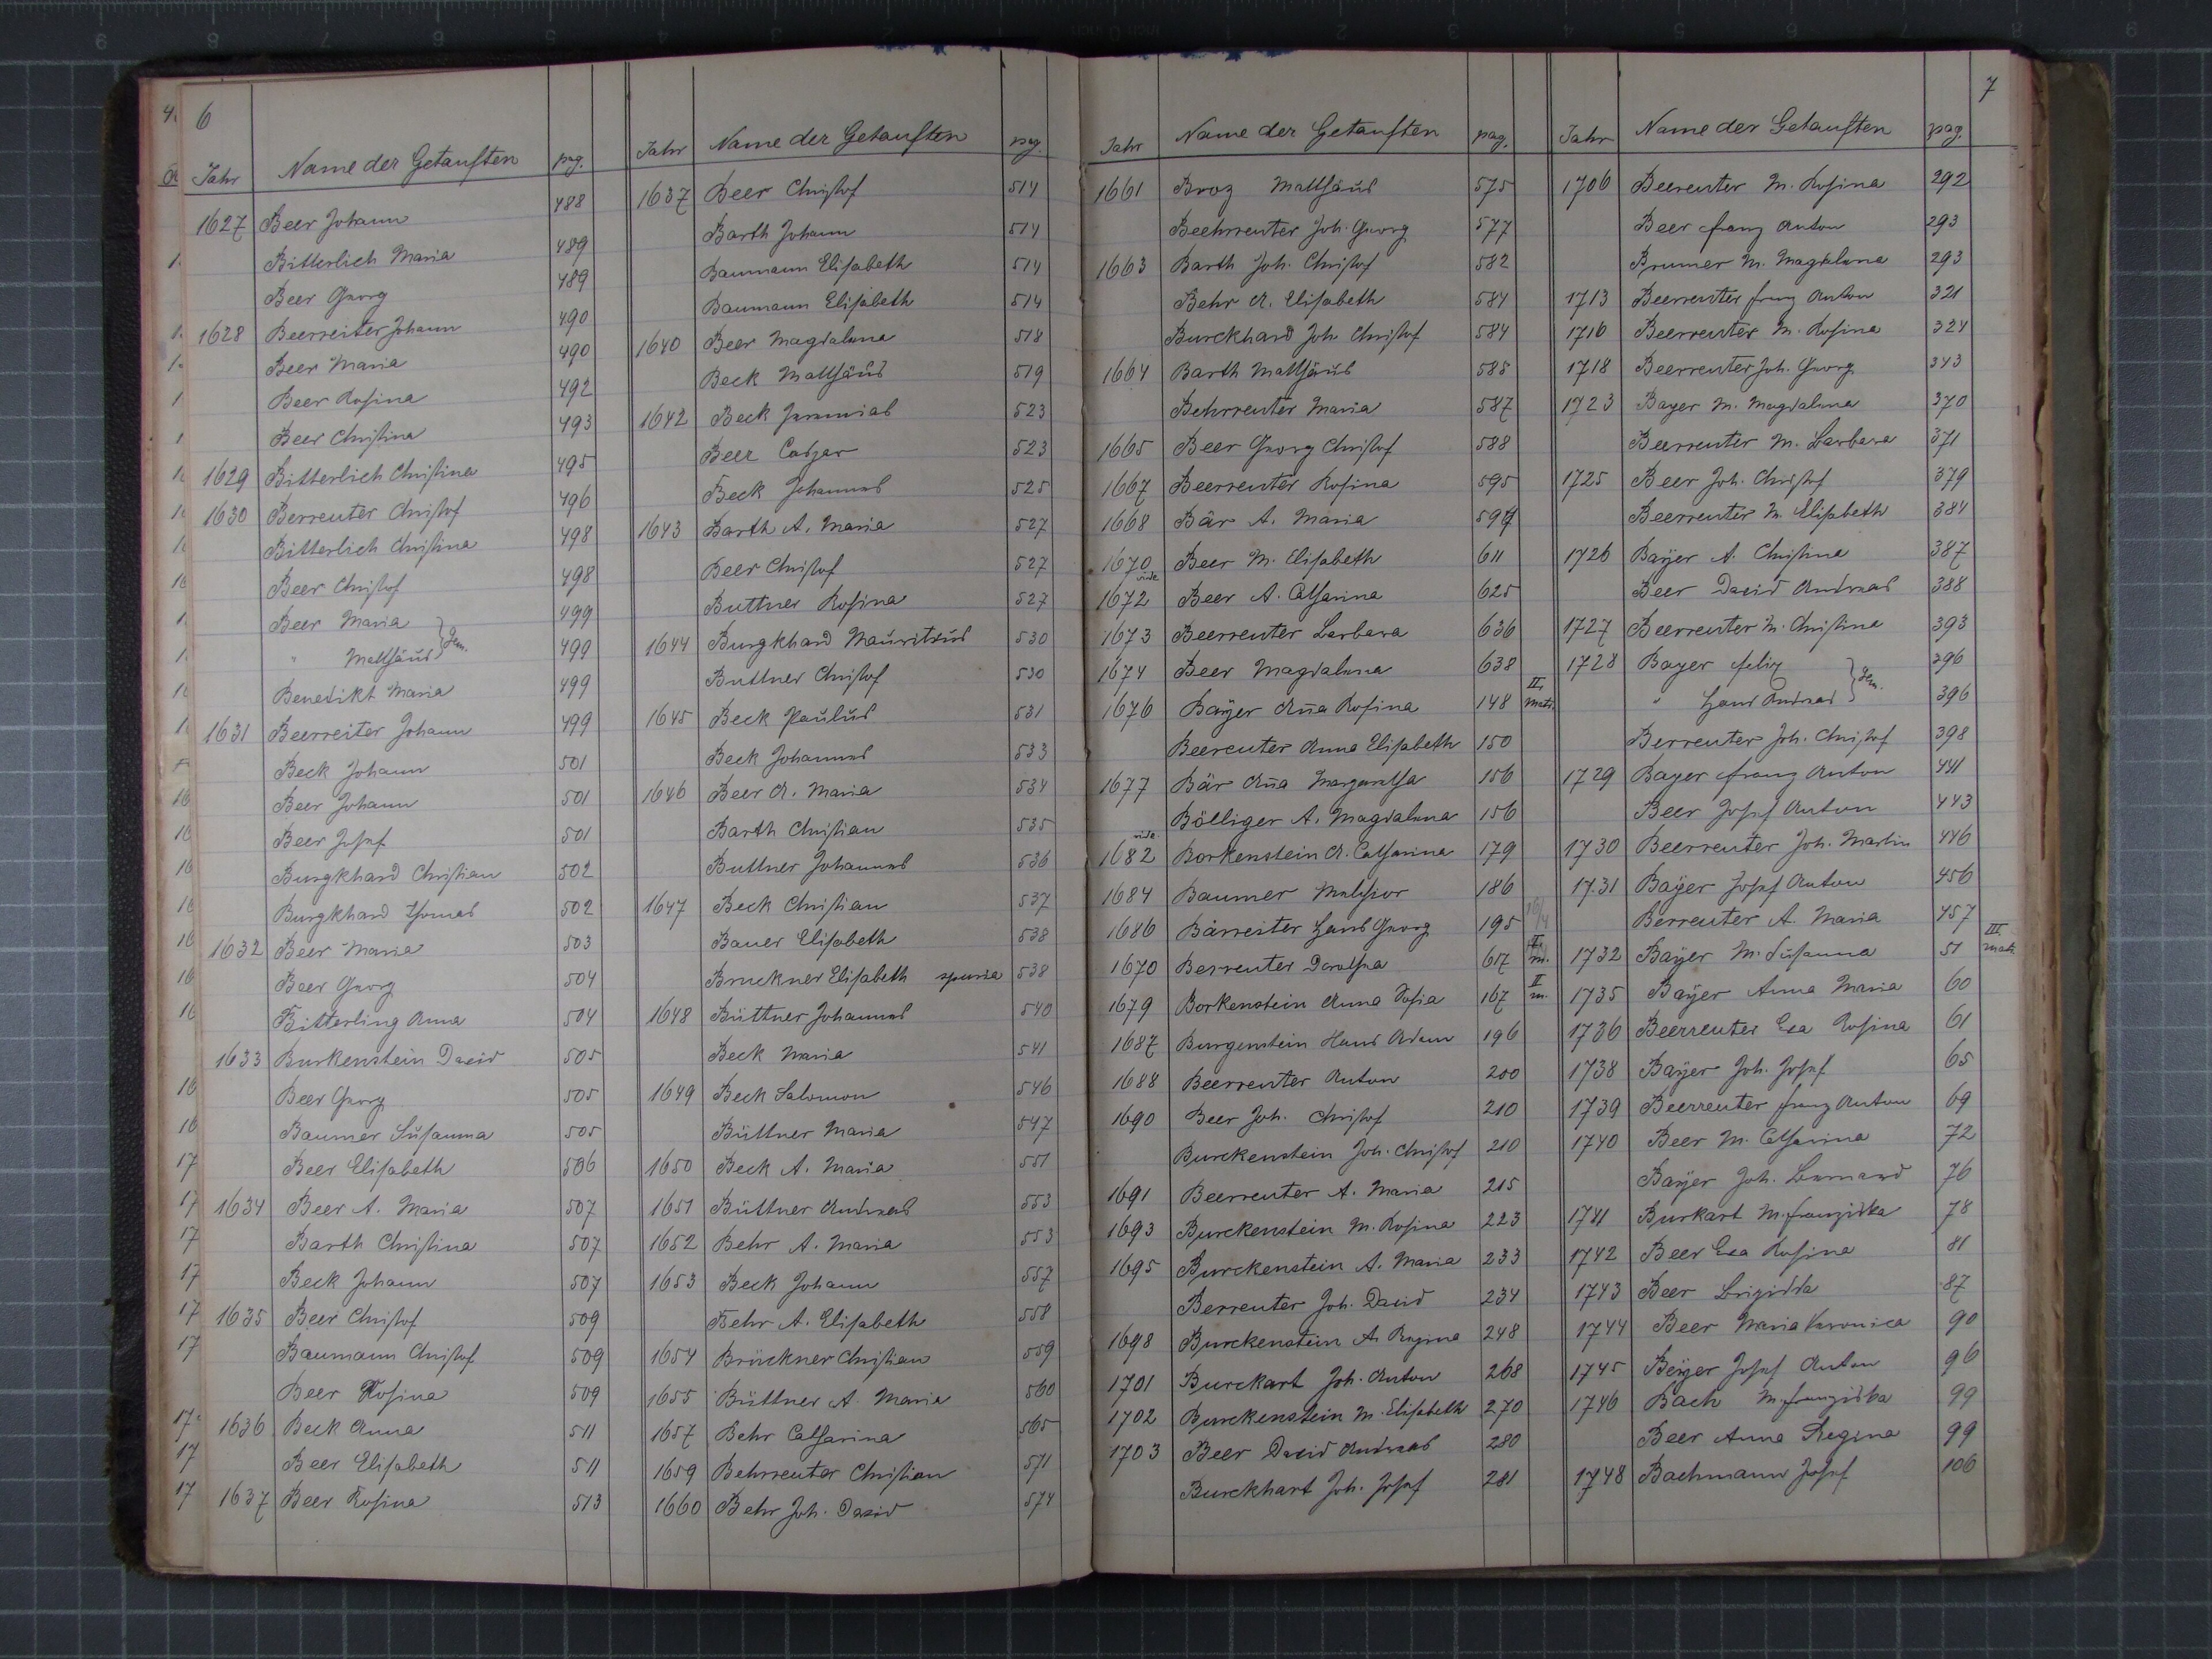 6
Jahr Name der Getauften pag.
1627 Beer Johann 488
Bitterlich Maria 489
Beer Georg 489
1628 Beerreiter Johann 490
Beer Maria 490
Beer Rosina 492
Beer Christina 493
1629 Bitterlich Christina 495
1630 Berreuter Christof 496
Bitterlich Christina 498
Beer Christof 498
Beer Maria 499
" Mathäus } Gem. 499
Benedikt Maria 499
1631 Beerreiter Johann 499
Beck Johann 501
Beer Johann 501
Beer Josef 501
Burgkhard Christian 502
Burgkhard Thomas 502
1632 Beer Maria 503
Beer Georg 504
Bitterling Anna 504
1633 Burkenstein David 505
Beer Georg 505
Baumer Susanna 505
Beer Elisabeth 506
1634 Beer A. Maria 507
Barth Christina 507
Beck Johann 507
1635 Beer Christof 509
Baumann Christof 509
Beer Rosina 509
1636 Beck Anna 511
Beer Elisabeth 511
1637 Beer Rosina 513
Jahr Name der Getauften pag.
1637 Beer Christof 514
Barth Johann 514
Baumann Elisabeth 514
Baumann Elisabeth 514
1640 Beer Magdalena 518
Beck Mathäus 519
1642 Beck Jeremias 523
Beer Caspar 523
Beck Johannes 525
1643 Barth A. Maria 527
Beer Christof 527
Buttner Rosina 527
1644 Burgkhard Mauritius 530
Buttner Christof 530
1645 Beck Paulus 531
Beck Johannes 533
1646 Beer A. Maria 534
Barth Christian 535
Buttner Johannes 536
1647 Beck Christian 537
Bauer Elisabeth 538
Bruckner Elisabeth spuria 538
1648 Büttner Johannes 540
Beck Maria 541
1649 Beck Salomon 546
Büttner Maria 547
1650 Beck A. Maria 551
1651 Büttner Andreas 553
1652 Behr A. Maria 553
1653 Beck Johann 557
Behr A. Elisabeth 558
1654 Brückner Christian 559
1655 Büttner A. Maria 560
1657 Behr Catharina 565
1659 Behrreuter Christian 571
1660 Behr Joh. David 574
Jahr Name der Getauften pag.
1661 Broz Mathäus 575
Beehrreuter Joh. Georg 577
1663 Barth Joh. Christof 582
Behr A. Elisabeth 584
Burckhard Joh. Christof 584
1664 Barth Mathäus 585
Behrreuter Maria 587
1665 Beer Georg Christof 588
1667 Beerreuter Rosina 595
1668 Bär A. Maria 599
1670 Beer M. Elisabeth 611
vide
1672 Beer A. Catharina 625
1673 Beerreuter Barbara 636
1674 Beer Magdalena 638
1676 Bayer Ana Rosina 148 II. matr.
Beereuter Anna Elisabeth 150
1677 Bär Ana Margaretha 156
Bölliger A. Magdalena 156
vide
1682 Borkenstein A. Catharina 179
1684 Baumer Melchior 186
1686 Bärreiter Hans Georg 195
1670 Berreuter Dorothea 617 II. m.
1679 Borkenstein Anna Sofia 167 II m.
1687 Burgenstein Hans Adam 196
1688 Beerreuter Anton 200
1690 Beer Joh. Christof 210
Burckenstein Joh. Christof 210
1691 Beerreuter A. Maria 215
1693 Burckenstein M. Rosina 223
1695 Burckenstein A. Maria 233
Berreuter Joh. David 234
1698 Burckenstein A. Regina 248
1701 Burckart Joh. Anton 268
1702 Burckenstein M. Elisabeth 270
1703 Beer David Andreas 280
Burckhart Joh. Josef 281
7
Jahr Name der Getauften pag.
1706 Beereuter M. Rosina 292
Beer Franz Anton 293
Brumer M. Magdalena 293
1713 Beerreuter Franz Anton 321
1716 Beerreuter M. Rosina 324
1718 Beerreuter Joh. Georg 343
1723 Bayer M. Magdalena 370
Beerreuter M. Barbara 371
1725 Beer Joh. Christof 379
Beerreuter M. Elisabeth 384
1726 Baÿer A. Christina 387
Beer David Andreas 388
1727 Beerreuter M. Christina 393
1728 Bayer Felix 396
" Hans Andreas } Gem. 396
Berreuter Joh. Christof 398
1729 Bayer Franz Anton 441
Beer Josef Anton 443
1730 Beerreuter Joh. Martin 446
1731 Baÿer Josef Anton 456
Berreuter A. Maria 457
1732 Baÿer M. Susanna 51 III. matr.
1735 Baÿer Anna Maria 60
1736 Beerreuter Eva Rosina 61
1738 Baÿer Joh. Josef 65
1739 Beerreuter Franz Anton 69
1740 Beer M. Catharina 72
Baÿer Joh. Bernard 76
1741 Burkart M. Franziska 78
1742 Beer Eva Rosina 81
1743 Beer Brigitta 87
1744 Beer Maria Veronica 90
1745 Beÿer Josef Anton 96
1746 Bach M. Franziska 99
Beer Anna Regina 99
1748 Bachmann Josef 106